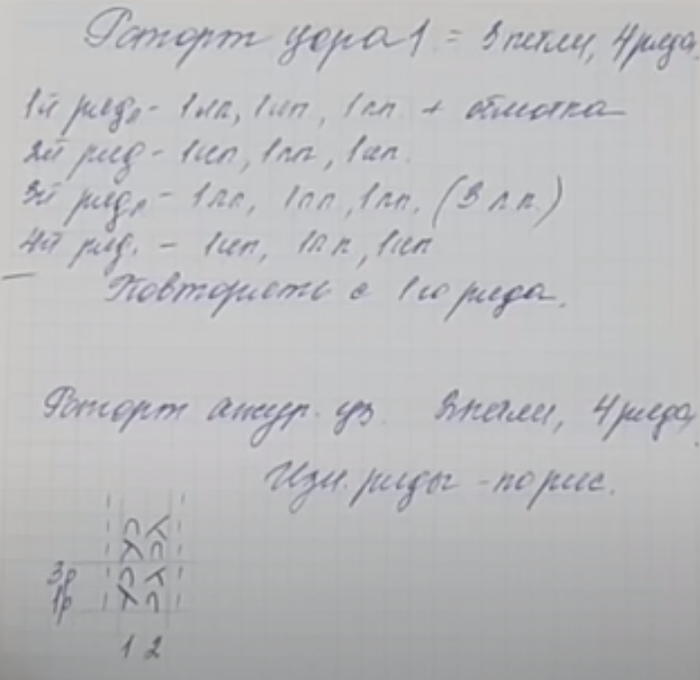 Раппорт узора 1 = 3 петли, 4 ряда.
1й ряд - 1лп, 1ип, 1лп + обмотка
2й ряд - 1ип, 1лп, 1ип.
3й ряд - 1лп, 1лп, 1лп. (3 л.п.)
4й ряд. - 1ип, 1лп, 1ип
Повторять с 1го ряда.
Раппорт ажур. уз. 2 петли, 4 ряда,
Изн. ряды - по рис.
3р
1р
1 2